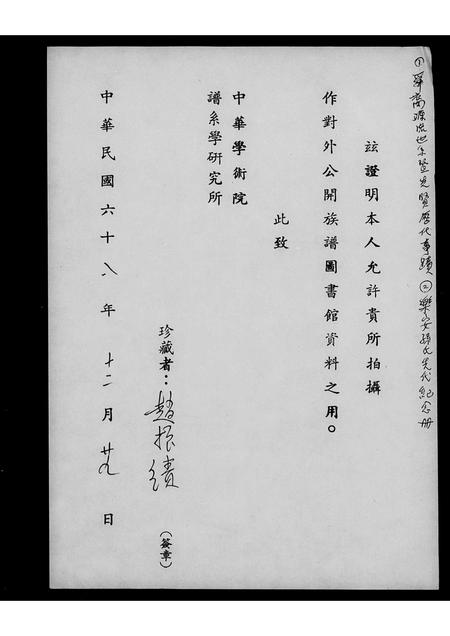 ①舜裔源流世系暨先賢歷代事蹟 ②樂安孫氏先代紀念册
茲證明本人允許貴所拍攝
作對外公開族譜圖書館資料之用。
此致
中華學術院
譜系學研究所
珍藏者：趙振績
（簽章）
中華民國六十八年 十二月 廿九 日